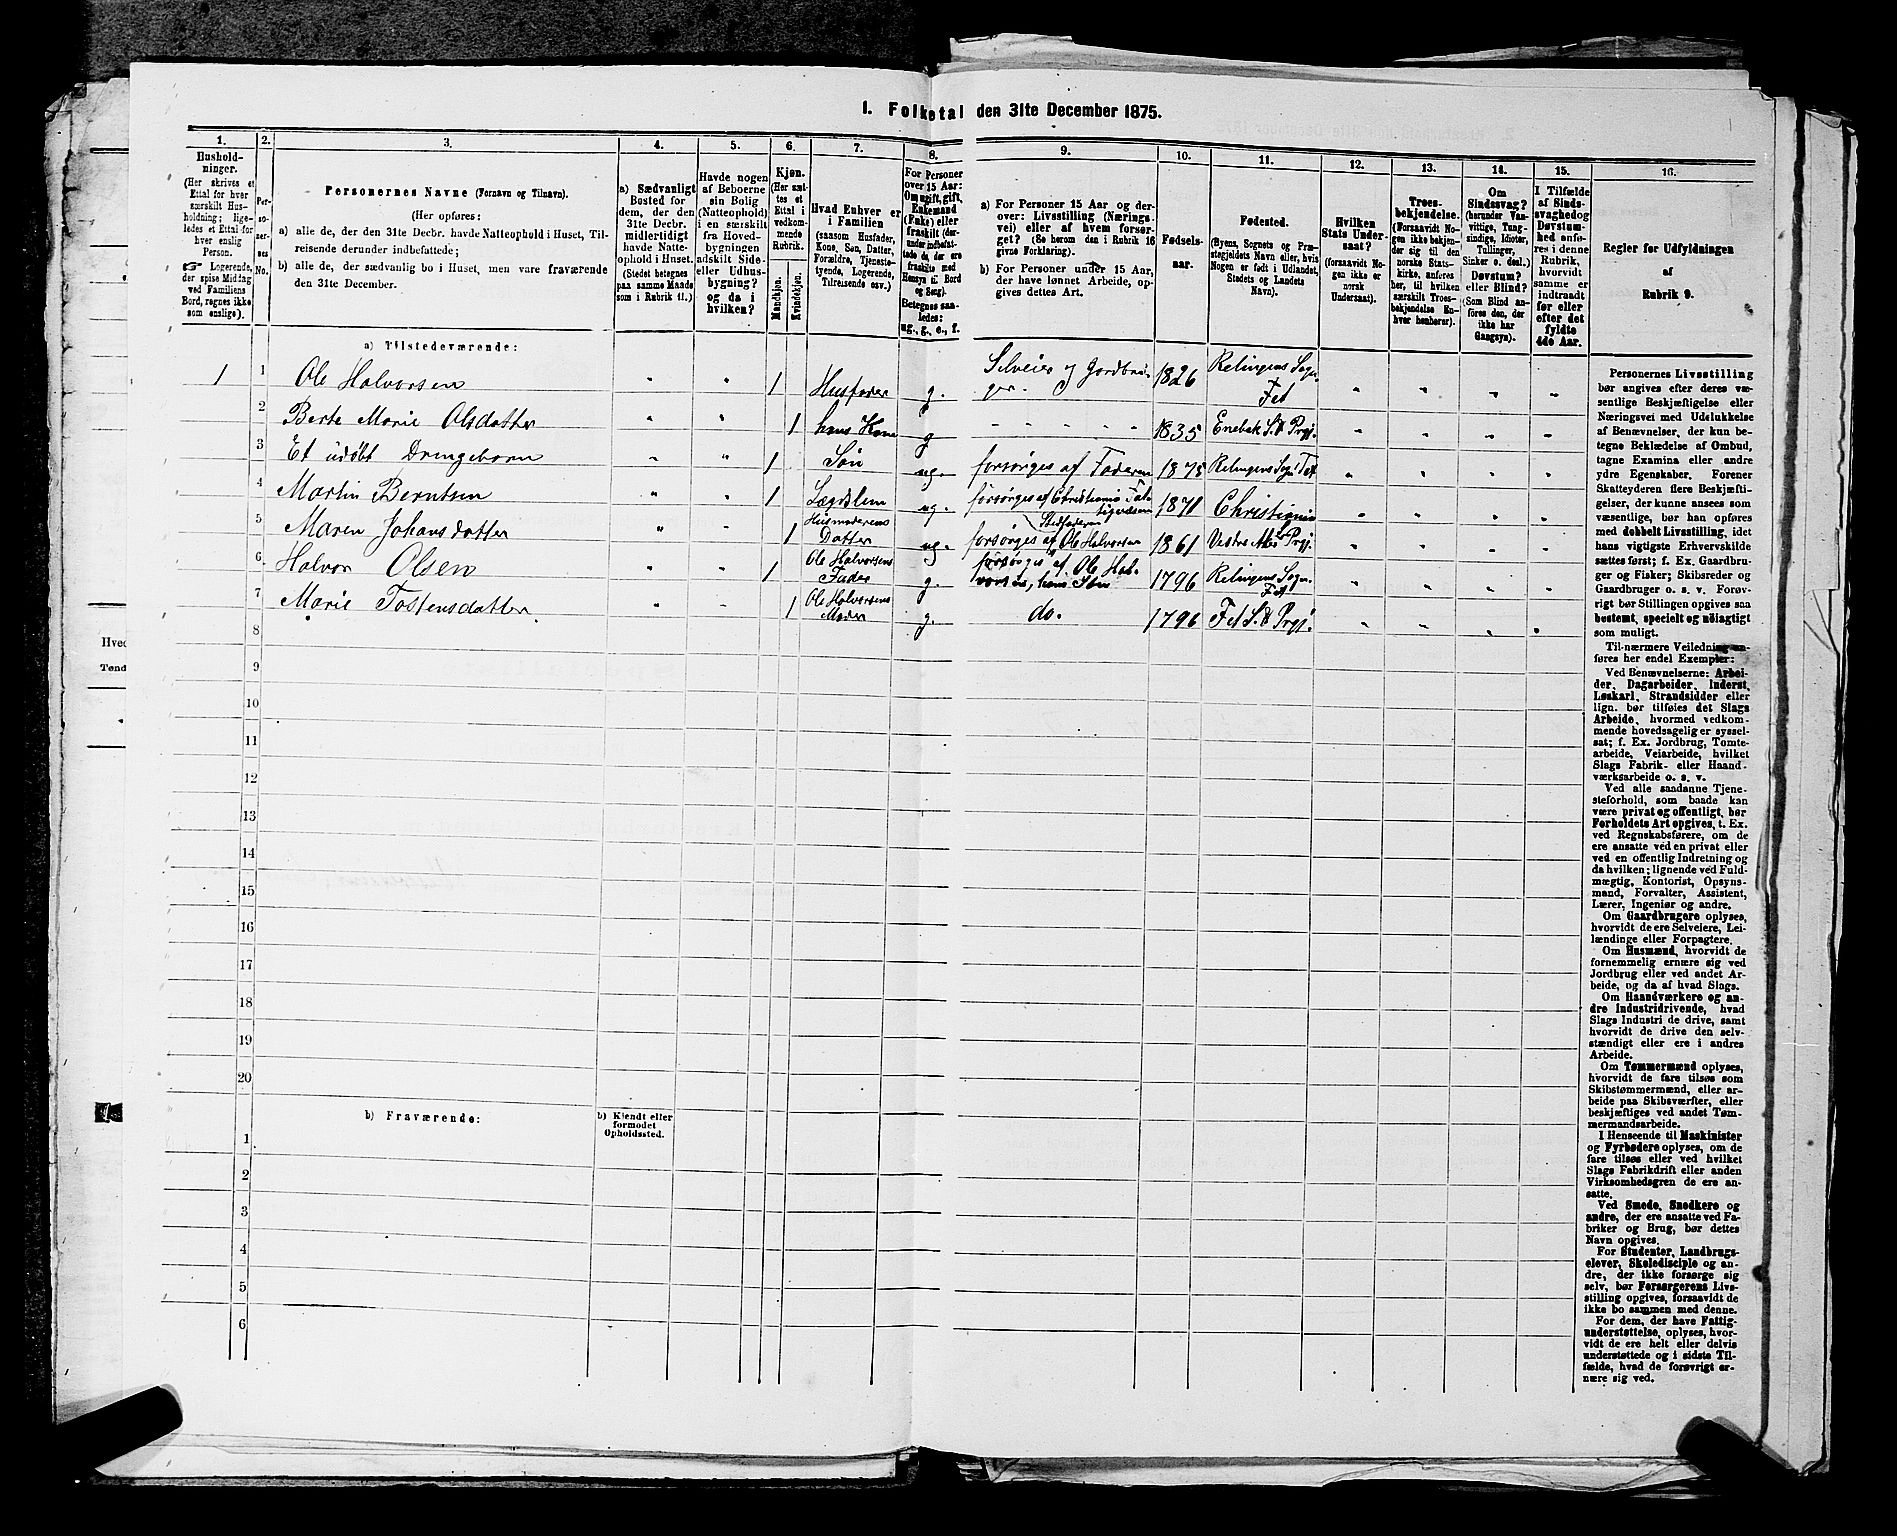 I. Folketal den 31te December 1875.
1. 2. 3. 4. 5. 6. 7. 8. 9. 10. 11. 12. 13. 14. 15. 16.
Hushold-
ninger.
(Her skrives et
Ettal for hver
særskilt Hus-
holdning; lige-
ledes et Ettal for
hver enslig
Person.
Logerende,
der spise Middag
ved Familiens
Bord, regnes ikke
som enslige).
Per-
so-
ner-
nes
No.
Personernes Navne (Fornavn og Tilnavn).
(Her opføres:
a) alle de, der den 31te Decbr. havde Natteophold i Huset, Til-
reisende derunder indbefattede;
b) alle de, der sædvanlig bo i Huset, men vare fraværende
den 31te December.
a) Sædvanligt
Bosted for
dem, der den
31te Decbr.
midlertidigt
havde Natte-
ophold i Huset.
(Stedet betegnes
paa samme Maade
som i Rubrik 11.)
Havde nogen
af Beboerne
sin Bolig
(Natteophold)
i en særskilt
fra Hoved-
bygningen
adskilt Side-
eller Udhus-
bygning?
og da i
hvilken?
Kjøn.
(Her sæt-
tes et
Ettal i
vedkom-
mende
Rubrik.
Mandkjøn.
Kvindekjøn.
Hvad Enhver er
i Familien
(saasom Husfader,
Kone, Søn, Datter,
Forældre, Tjeneste-
tyende, Logerende,
Tilreisende osv.)
For Personer
over 15 Aar:
Om ugift, gift,
Enkemand
(Enke) eller
fraskilt (der-
under indbefat-
tede de, der ere
fraskilte med
Hensyn til Bord
og Seng).
Betegnes saa-
ledes:
ug., g., e., f.
a) For Personer 15 Aar og der-
over: Livsstilling (Nærings-
vei) eller af hvem forsør-
get? (Se herom den i Rubrik 16
givne Forklaring).
b) For Personer under 15 Aar,
der have lønnet Arbeide, op-
gives dettes Art.
Fødsels-
aar.
Fødested.
(Byens, Sognets og Præ-
stegjeldets Navn eller, hvis
Nogen er født i Udlandet,
Stedets og Landets
Navn).
Hvilken
Stats Under-
saat?
(forsaavidt No-
gen ikke er
norsk
Undersaat).
Troes-
bekjendelse.
(Forsaavidt No-
gen ikke bekjen-
der sig til den
norske Stats-
kirke, anføres
her, til hvilken
særskilt Troes-
bekjendelse En-
hver henhører).
Om
Sindssvag?
(herunder Van-
vittige, Tung-
sindige, Idioter,
Tullinger,
Sinker o. desl.)
Døvstum?
eller Blind?
(Som Blind an-
føres den, der
ikke har
Gangsyn).
I Tilfælde
af Sinds-
svaghed og
Døvstum-
hed anfø-
res i denne
Rubrik,
hvorvidt
samme er
indtraadt
før eller
efter det
fyldte
4de Aar.
Regler for Udfyldningen
af
Rubrik 9.
a) Tilstedeværende:
1 1 Ole Halvorsen " " 1 Husfader g. Selveier og Gardbru-
ger. 1826 Relingens Sogn. Fet " " " "
2 Berte Marie Olsdatter " " 1 hans Kone g - - - - - 1835 Enebak S. & Prgj. " " " "
3 Et udøbt Drengebarn " " 1 Søn ug. forsørges af Faderen 1875 Relingens Sogn Fet " " " "
4 Martin Berntsen " " 1 Lægdslem ug. forsørges af Christiania Fat-
tigvæsen 1871 Christiania " " " "
5 Maren Johansdatter " " 1 Husmoderens
Datter ug. forsørges af Stedfaderen Ole Halvorsen 1861 Vestre Prgj. " " " "
6 Halvor Olsen " " 1 Ole Halvorsens
Fader g. forsørges af Ole Hal-
vorsen, hans Søn 1796 Relingens Sogn.
Fet " " " "
7 Marie Tostensdatter " " 1 Ole Halvorsens
Moder g. do. 1796 Fet S. & Prgj. " " " "
8
9
10
11
12
13
14
15
16
17
18
19
20
b) Fraværende:
b) Kjendt eller
formodet
Opholdssted.
1
2
3
4
5
6
Personernes Livsstilling
bør angives efter deres væ-
sentlige Beskjæftigelse eller
Næringsvei med Udelukkelse
af Benævnelser, der kun be-
tegne Beklædelse af Ombud,
tagne Examina eller andre
ydre Egenskaber. Forener
Skatteyderen flere Beskjæfti-
gelser, der kunne ansees som
væsentlige, bør han opføres
med dobbelt Livsstilling, idet
hans vigtigste Erhvervskilde
sættes først; f. Ex. Gaardbru-
ger og Fisker; Skibsreder og
Gaardbruger o. s. v. Forøv-
rigt bør Stillingen opgives saa
bestemt, specielt og nøiagtigt
som muligt.
Til nærmere Veiledning an-
føres her endel Exempler:
Ved Benævnelserne: Arbei-
der, Dagarbeider, Inderst,
Løskarl, Strandsidder eller
lign. bør tilføies det Slags
Arbeide, hvormed vedkom-
mende hovedsagelig er syssel-
sat; f. Ex. Jordbrug, Tomte-
arbeide, Veiarbeide, hvilket
Slags Fabrik- eller Haand-
værksarbeide o. s. v.
Ved alle saadanne Tjene-
steforhold, som baade kan
være privat og offentligt, bør
Forholdets Art opgives, t. Ex.
ved Regnskabsførere, om de
ere ansatte ved en privat eller
ved en offentlig Indretning og
da hvilken; lignende ved Fuld-
mægtig, Kontorist, Opsyns-
mand, Forvalter, Assistent,
Lærer, Ingeniør og andre.
Om Gaardbrugere oplyses,
hvorvidt de ere Selveiere, Lei-
lændinge eller Forpagtere.
Om Husmænd, hvorvidt de
fornemmelig ernære sig ved
Jordbrug eller ved andet Ar-
beide, og da af hvad Slags.
Om Haandværkere og an-
dre Industridrivende, hvad
Slags Industri de drive, samt
hvorvidt de drive den selv-
stændigt eller ere i andres
Arbeide.
Om Tømmermænd oplyses,
hvorvidt de fare tilsøs som
Skibstømmermænd, eller ar-
beide paa Skibsværfter, eller
beskjæftiges ved andet Tøm-
mermandsarbeide.
I Henseende til Maskinister
og Fyrbødere oplyses, om de
fare tilsøs eller ved hvilket
Slags Fabrikdrift eller anden
Virksomhedsgren de ere an-
satte.
Ved Smede, Snedkere og
andre, der ere ansatte ved Fa-
briker og Brug, bør dettes
Navn opgives.
For Studenter, Landbrugs-
elever, Skoledisciple og an-
dre, der ikke forsørge sig
selv, bør Forsørgerens Livs-
stilling opgives, forsaavidt de
ikke bo sammen med denne.
For dem, der have Fattig-
understøttelse, oplyses, hvor-
vidt de ere helt eller delvis
understøttede og i sidste Til-
fælde, hvad de forøvrigt er-
nære sig ved.
Hved
Tønd